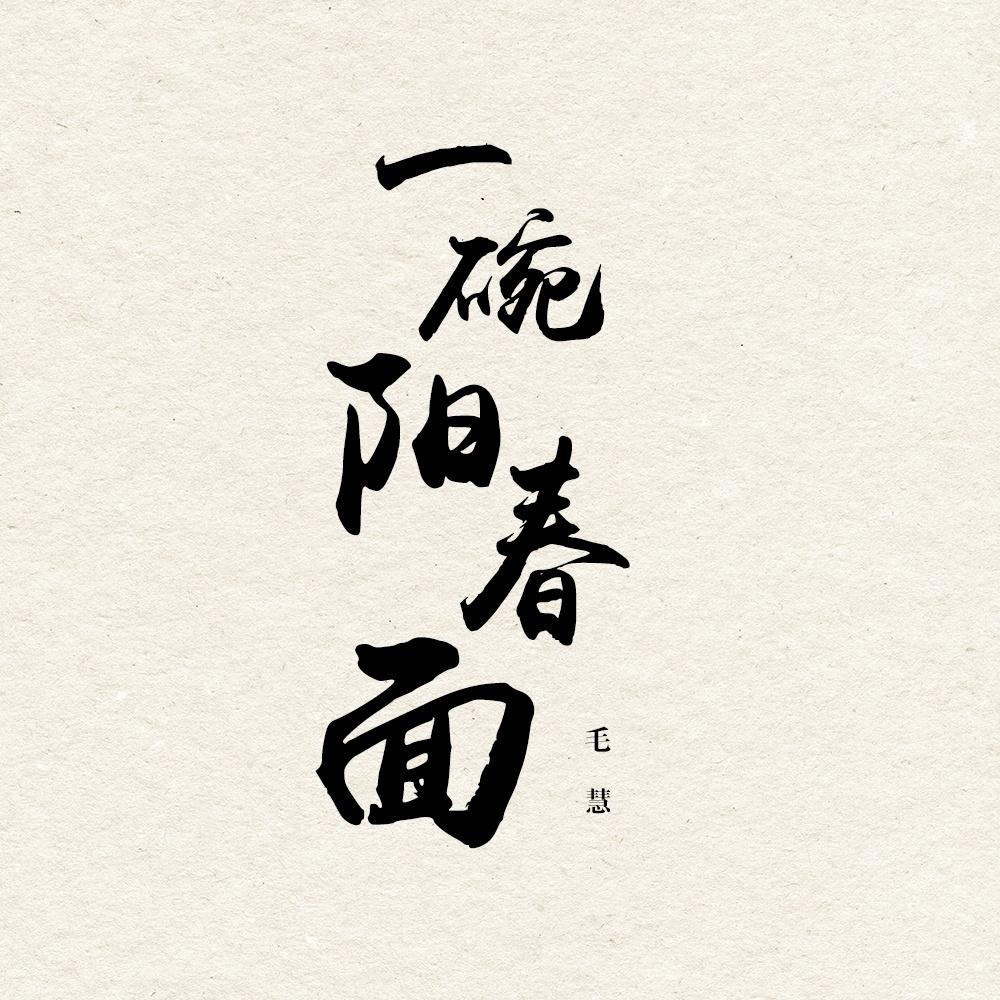 一碗阳春面
毛慧